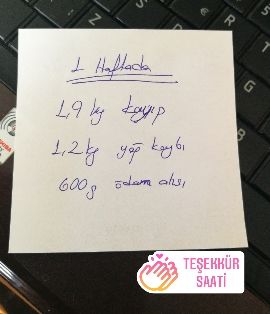 1 Haftada
1,9 kg kayıp
1,2 kg yağ kaybı
600g ödem atışı
TEŞEKKÜR
SAATİ